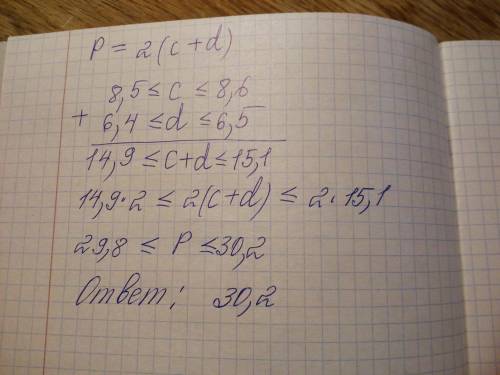 P = 2(c+d)
8,5 ≤ c ≤ 8,6
+ 6,4 ≤ d ≤ 6,5
14,9 ≤ c+d ≤ 15,1
14,9·2 ≤ 2(c+d) ≤ 2·15,1
29,8 ≤ P ≤ 30,2
Ответ: 30,2